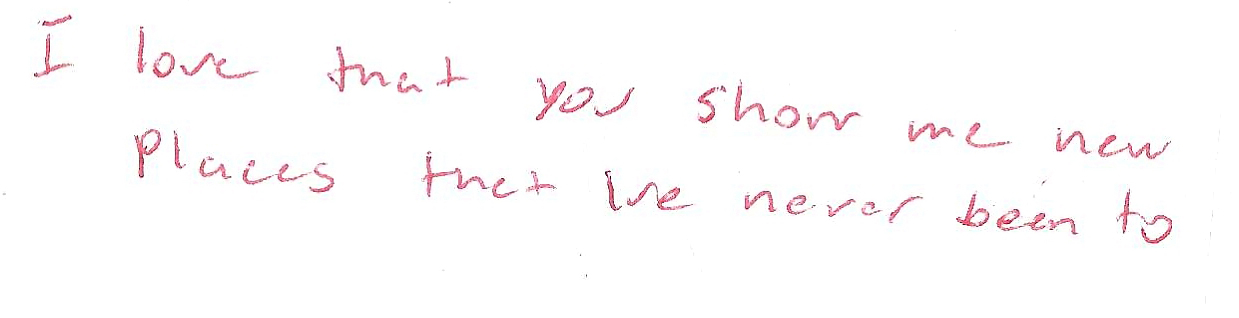 I love that you show me new
places that Ive never been to